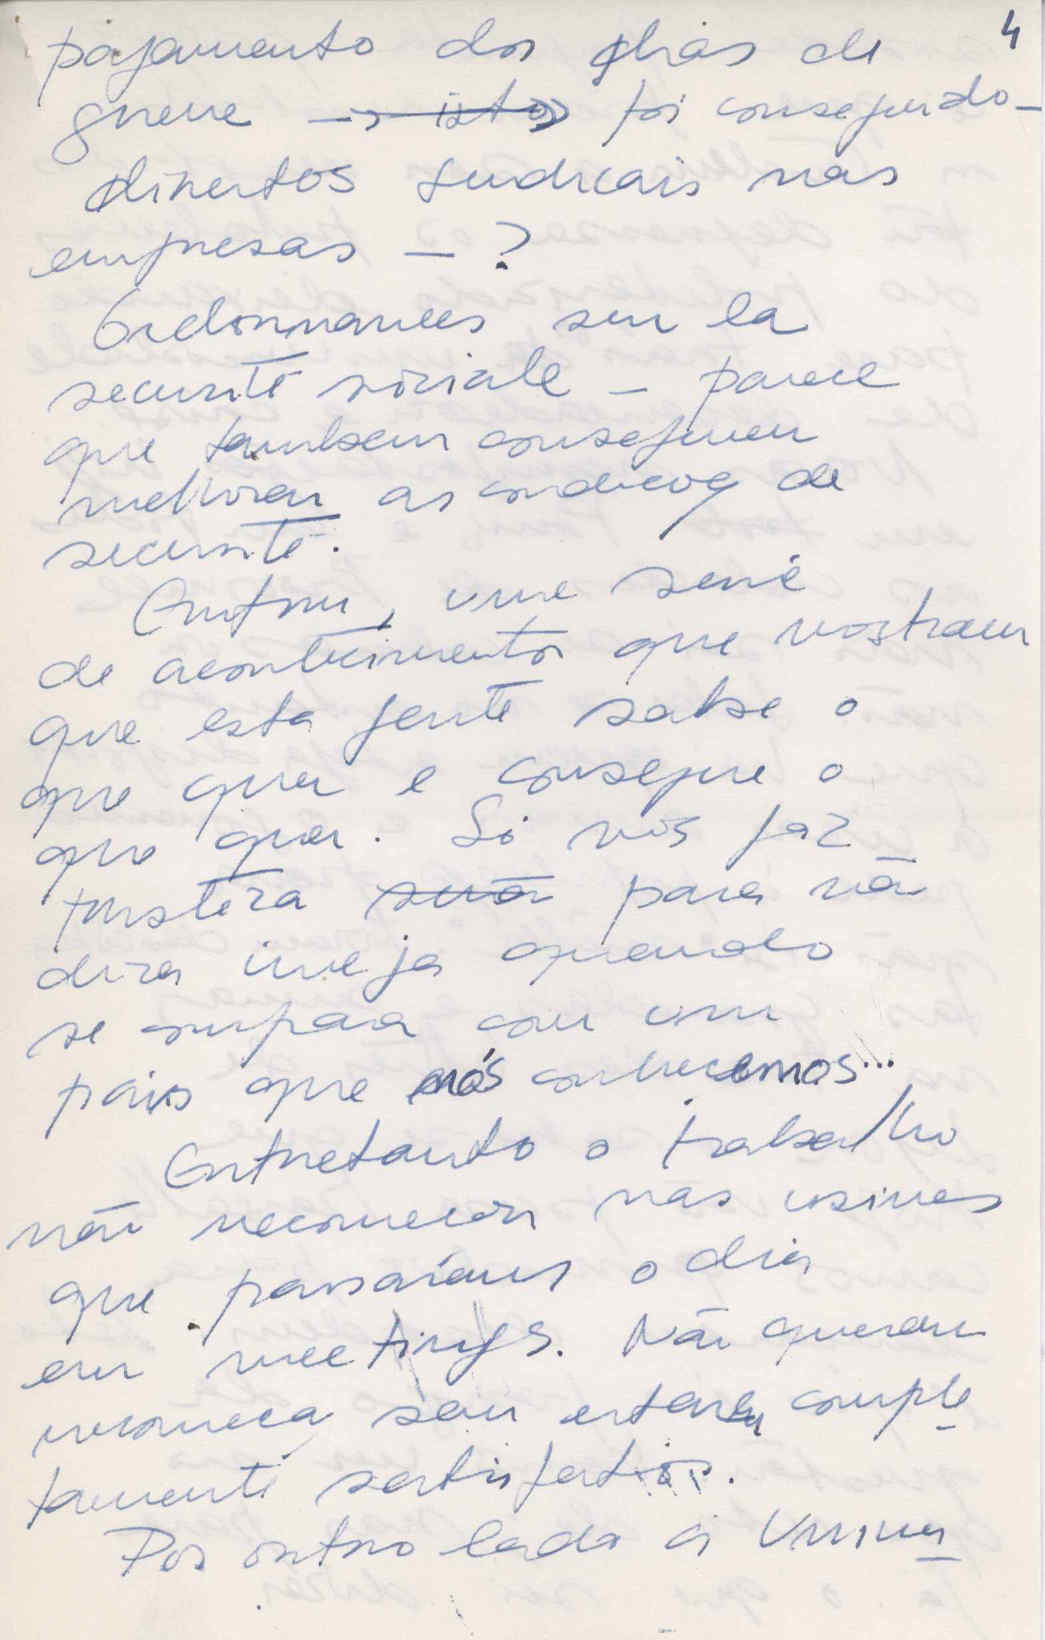 4
pagamento dos dias de
greve —> isto foi conseguido —
direitos sindicais nas
empresas — ?
Ordonnances sur la
securité sociale — parece
que tambem conseguem
melhorar as condições de
securité.
Enfim, uma serie
de acontecimentos que mostram
que esta gente sabe o
que quer e consegue o
que quer. Só nos faz
tristeza senão para não
dizer inveja quando
se compara com um
país que nós conhecemos...
Entretanto o trabalho
não recomeçou nas usines
que passaram o dia
em meetings. Não queram
recomeçar sem estarem comple
tamente satisfeitos.
Por outro lado a Univer